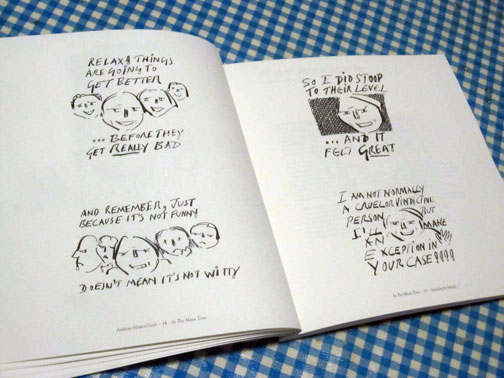 RELAX & THINGS
ARE GOING TO
GET BETTER
... BEFORE THEY
GET REALLY BAD
AND REMEMBER, JUST
BECAUSE IT'S NOT FUNNY
DOESN'T MEAN IT'S NOT WITTY
In The Mean Time
SO I DID STOOP
TO THEIR LEVEL
... AND IT
FELT GREAT
I AM NOT NORMALLY
A CRUEL OR VINDICTIVE
PERSON BUT
I'LL MAKE
AN
EXCEPTION IN
YOUR CASE!!!!
In The Mean Time